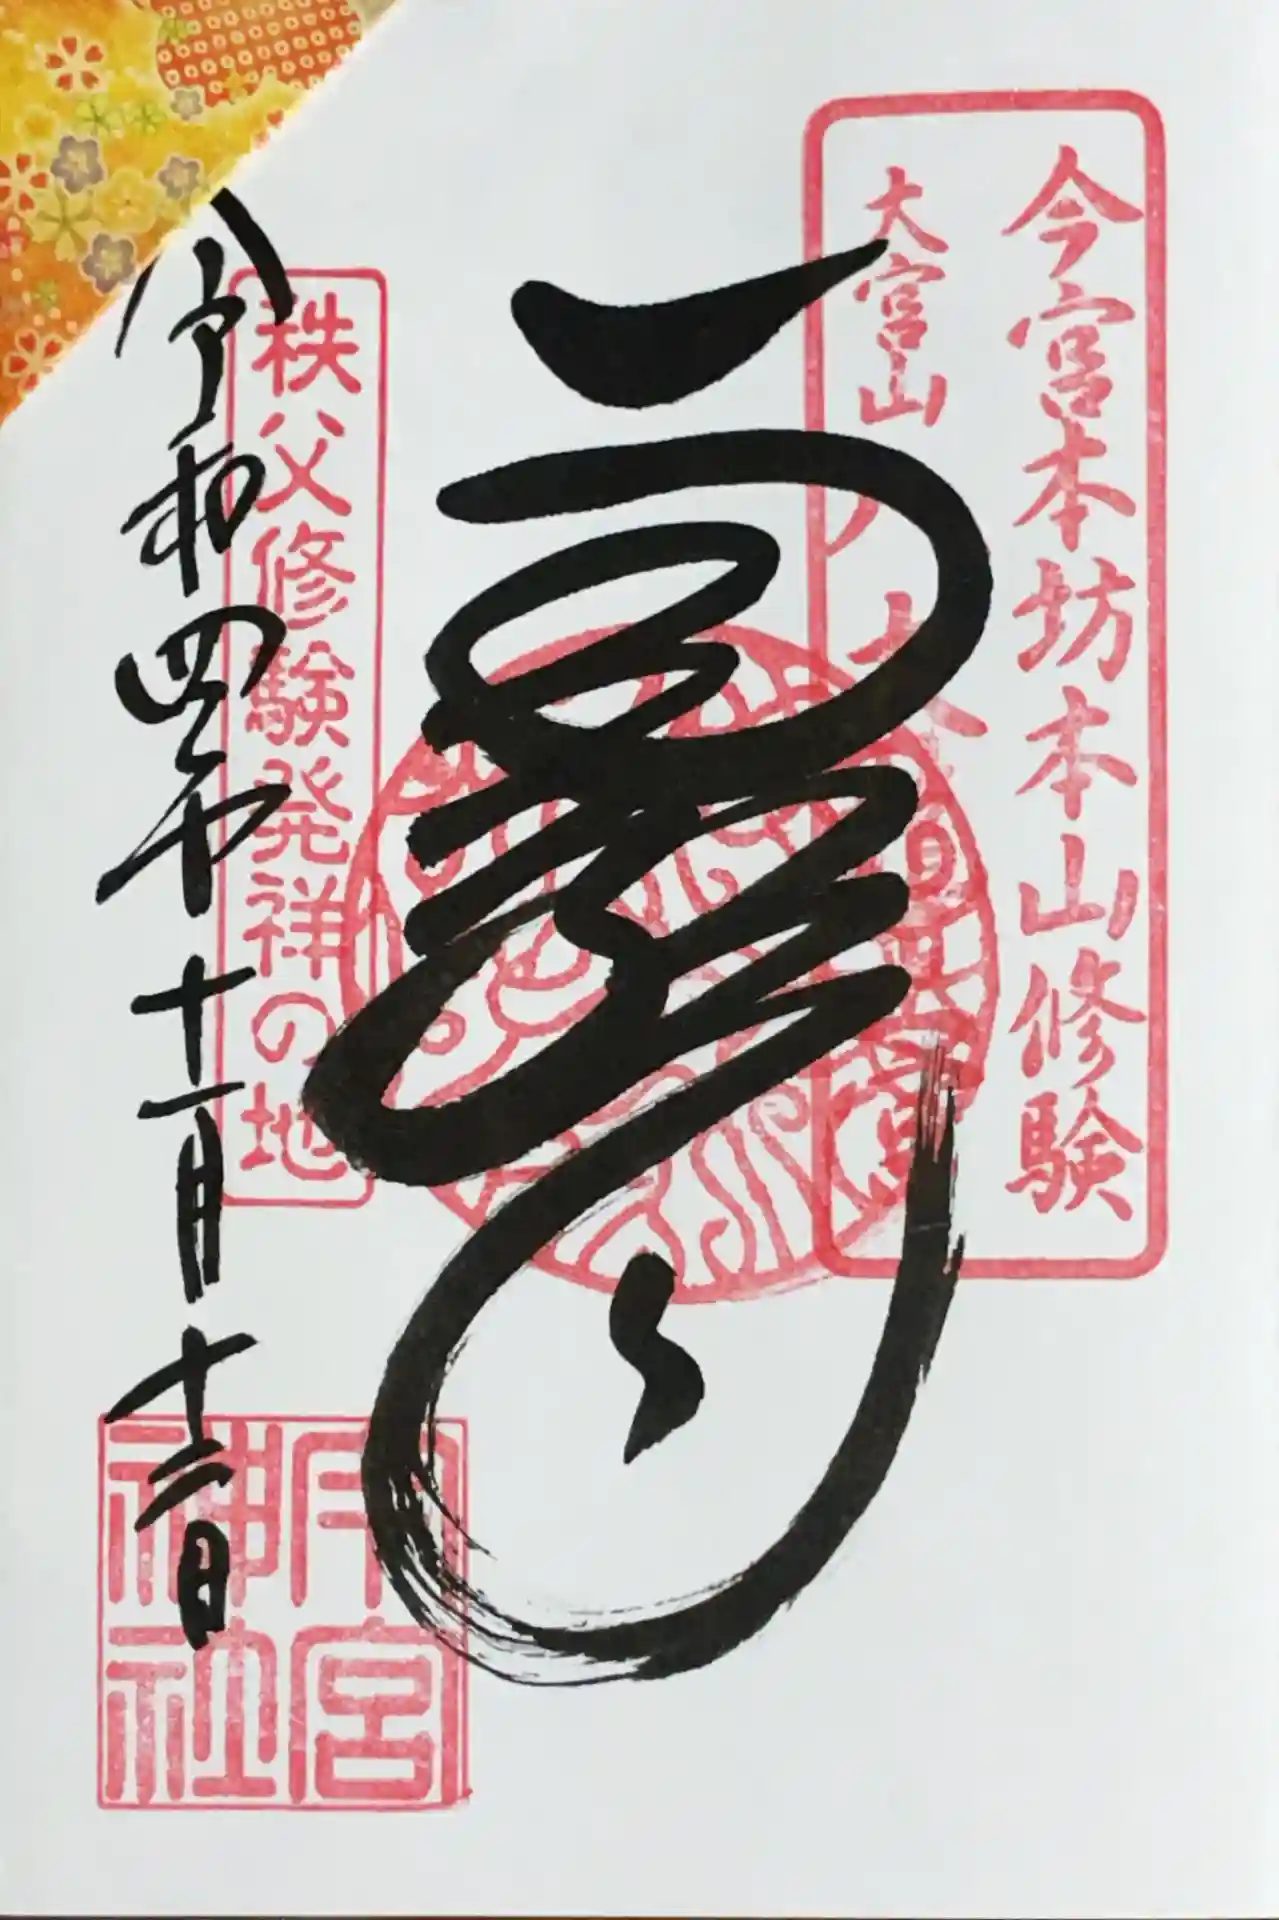 今宮本坊本山修験
大宮山
八大龍王宮
龍
秩父修験発祥の地
令和四年十一月十二日
今宮神社